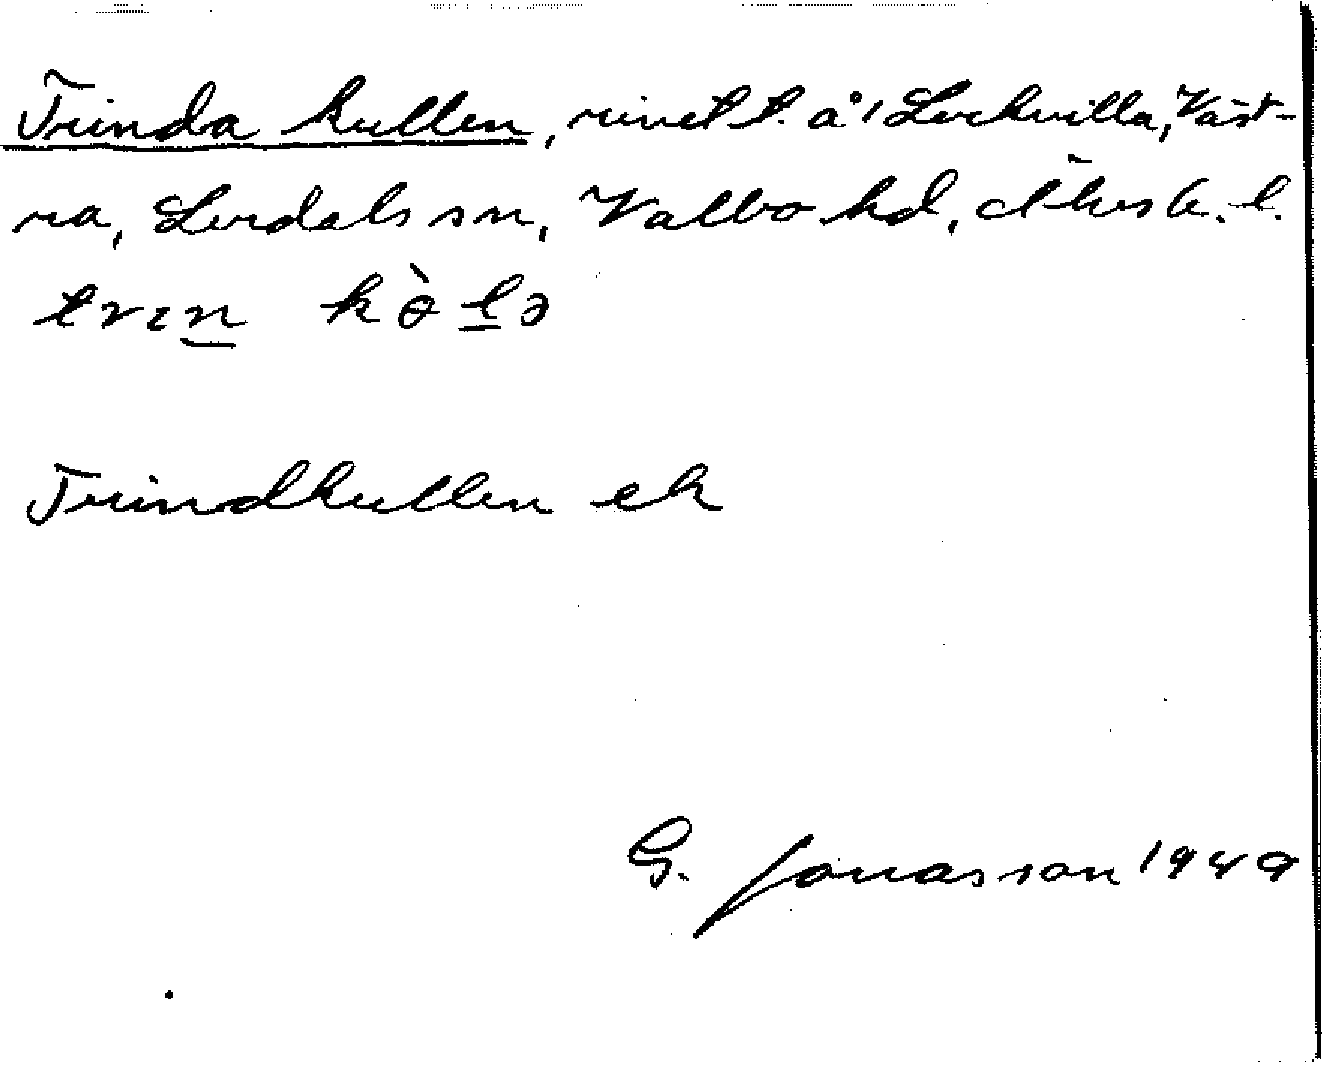 Trinda kullen, rivet t. å 1 Lerkvilla, Väst-
ra, Lerdals sn, Valbo hd, Älvsb. l.
trın kὸlə
Trindkullen ek
G. Jonasson 1949